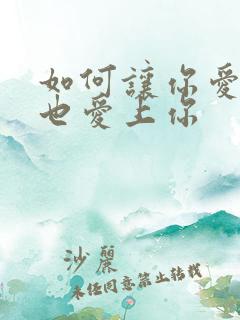 如何讓你愛
也愛上你
沙麗
未經同意禁止轉載